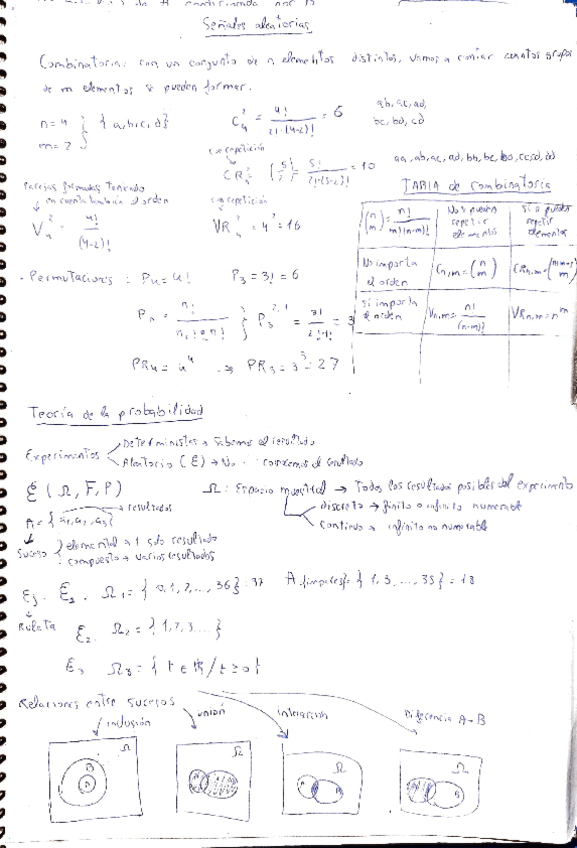 Señales aleatorias
Combinatoria: con un conjunto de n elementos distintos, vamos a contar cuantos grupos
de m elementos se pueden formar.
n = 4
m = 2 } {a,b,c,d}
C₄² = 4! / 2!·(4-2)! = 6
ab, ac, ad,
bc, bd, cd
repetición
CR₄² (5 2) = 5! / 2!(5-2)! = 10
aa, ab, ac, ad, bb, bc, bd, cc, cd, dd
Parejas formadas Teniendo
en cuenta también el orden
V₄² = 4! / (4-2)!
repetición
VR₄² = 4² = 16
TABLA de Combinatoria
(n m) = n! / m!(n-m)!
No se pueden repetir elementos
Si se pueden repetir elementos
No importa el orden
Cn,m = (n m)
CRn,m = (n+m-1 m)
Si importa el orden
Vn,m = n! / (n-m)!
VRn,m = n^m
- Permutaciones: P₄ = 4!  P₃ = 3! = 6
P₃^2,1 = 3! / 2!·1! = 3
PR₄ = 4⁴ → PR₃ = 3³ = 27
Teoría de la probabilidad
Experimentos
Deterministas → Sabemos el resultado
Aleatorio (Ɛ) → No conocemos el resultado
Ɛ (Ω, F, P)
Ω: Espacio muestral → Todos los resultados posibles del experimento
discreto → finito o infinito numerable
Continuo → infinito no numerable
A = {a₁, a₂, a₃} → resultados
Suceso
elemental → 1 solo resultado
compuesto → varios resultados
Ω₁ = {0,1,2,..., 36} = 37  A {impares} = {1, 3, ..., 35} = 18
Ruleta
Ɛ₂ Ω₂ = {1,2,3...}
Ɛ₃ Ω₃ = {t ∈ ℝ / t ≥ 0}
Relaciones entre sucesos
inclusión
unión
intersección
Diferencia A-B
Ω
Ω
Ω
Ω
B